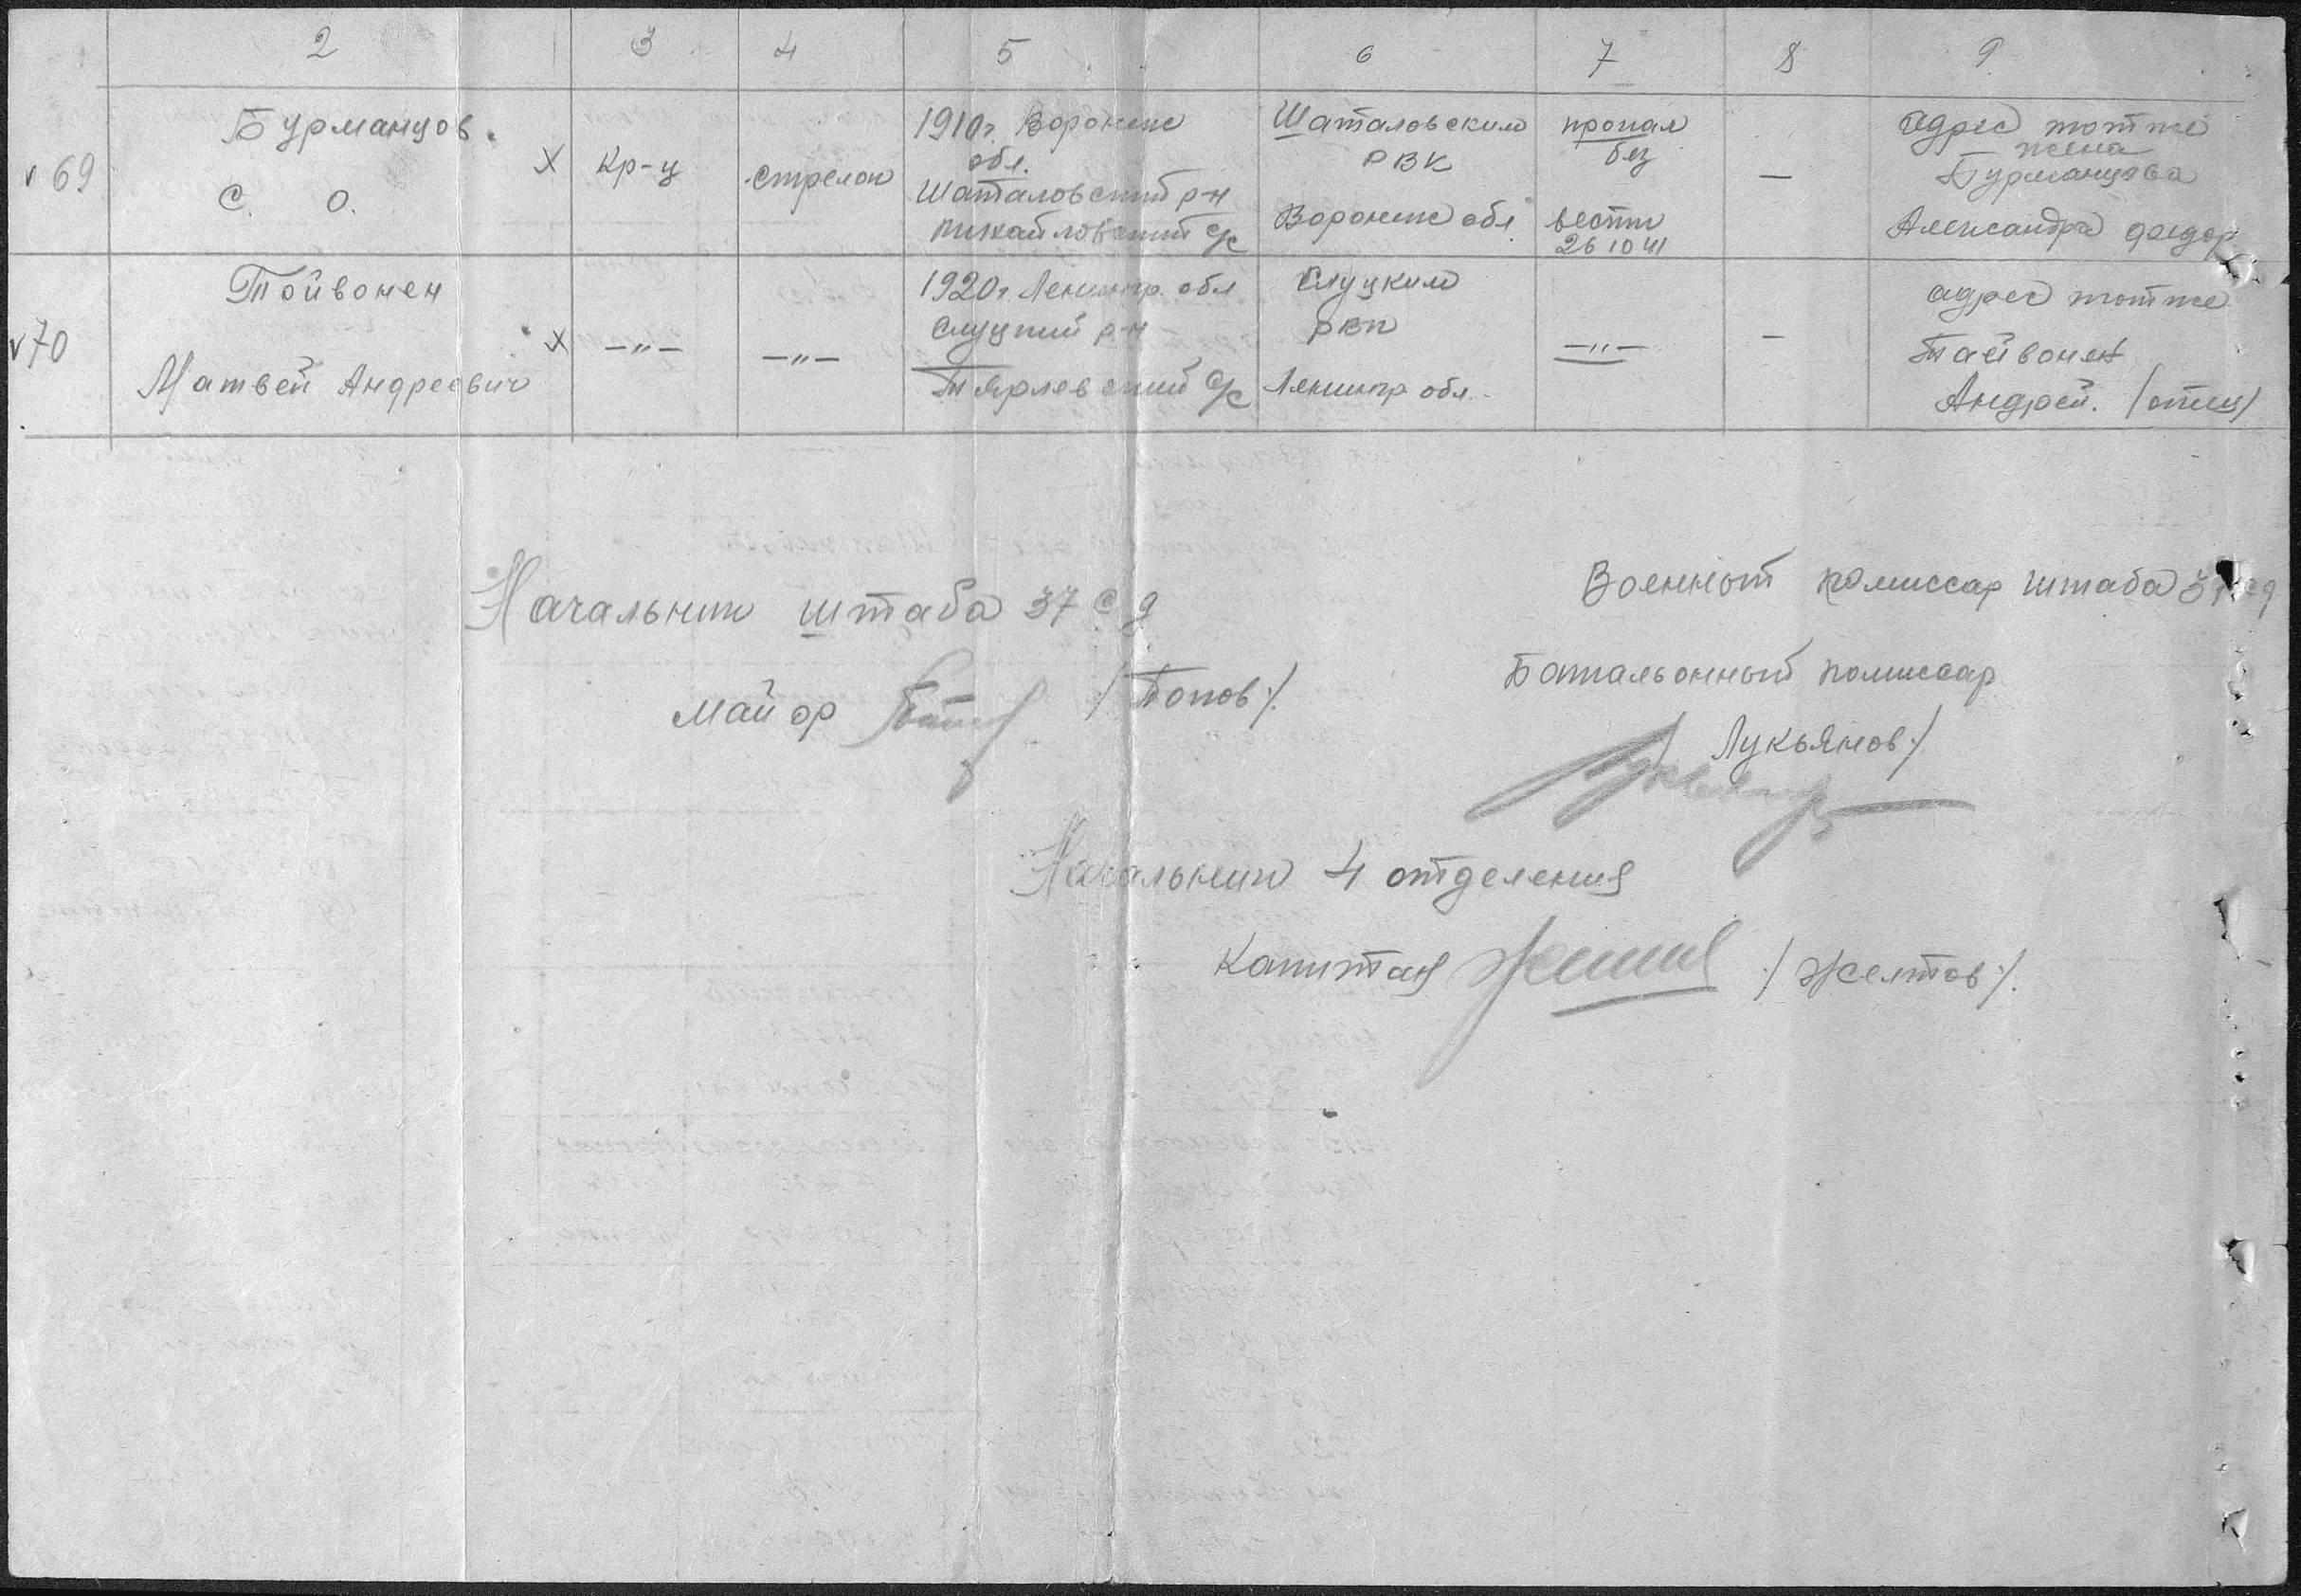 2 3 4 5 6 7 8 9
v 69
Бурманцов
С. О.
х
Кр-ц
стрелок
1910г. Воронеж
обл.
Шаталовский р-н
Михайловский с/с
Шаталовским
РВК
Воронеж обл.
пропал
без
вести
26 10 41
—
адрес тот же
жена
Бурманцова
Александра Федор
v 70
Тойвонен
Матвей Андреевич
х
—"—
—"—
1920г. Ленингр. обл
Слуцкий р-н
Тярлевский с/с
Слуцким
РВК
Ленингр обл.
—"—
—
адрес тот же
Тайвонен
Андрей. (отец)
Начальник штаба 37 с д
майор /Попов/.
Военный комиссар штаба 37 сд
Батальонный комиссар
/Лукьянов/
Начальник 4 отделения
Капитан /Желтов/.